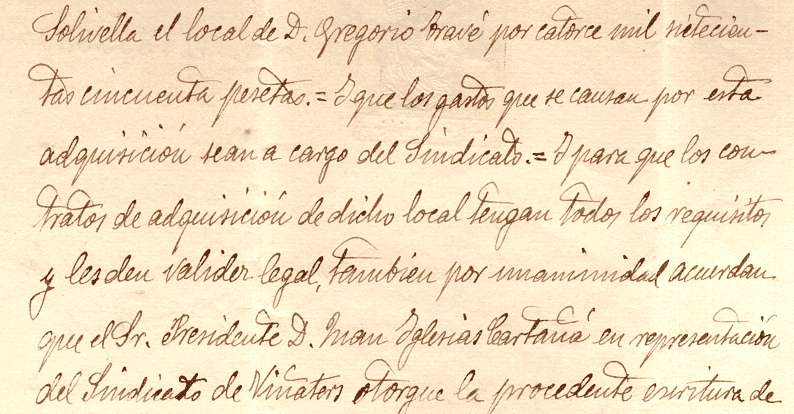 Solivella el local de D. Gregorio Travé por catorce mil setecien-
tas cincuenta pesetas.= I que los gastos que se causan por esta
adquisición sean a cargo del Sindicato.= I para que los con-
tratos de adquisición de dicho local tengan todos los requisitos
y les den valider legal, tambien por unanimidad acuerdan
que el Sr. Presidente D. Juan Iglesias Cartañá en representación
del Sindicato de Viñaters otorgue la procedente escritura de